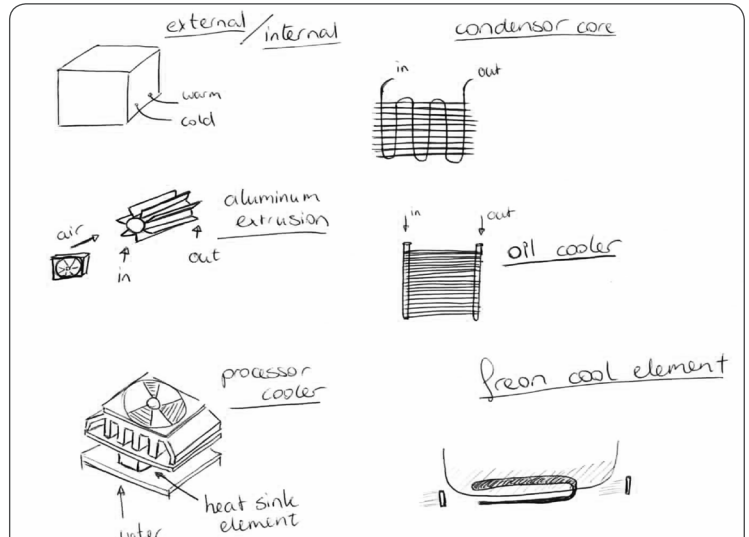 external / internal
warm
cold
condensor core
in
out
aluminum
extrusion
air
in
out
in
out
oil cooler
processor
cooler
heat sink
element
freon cool element